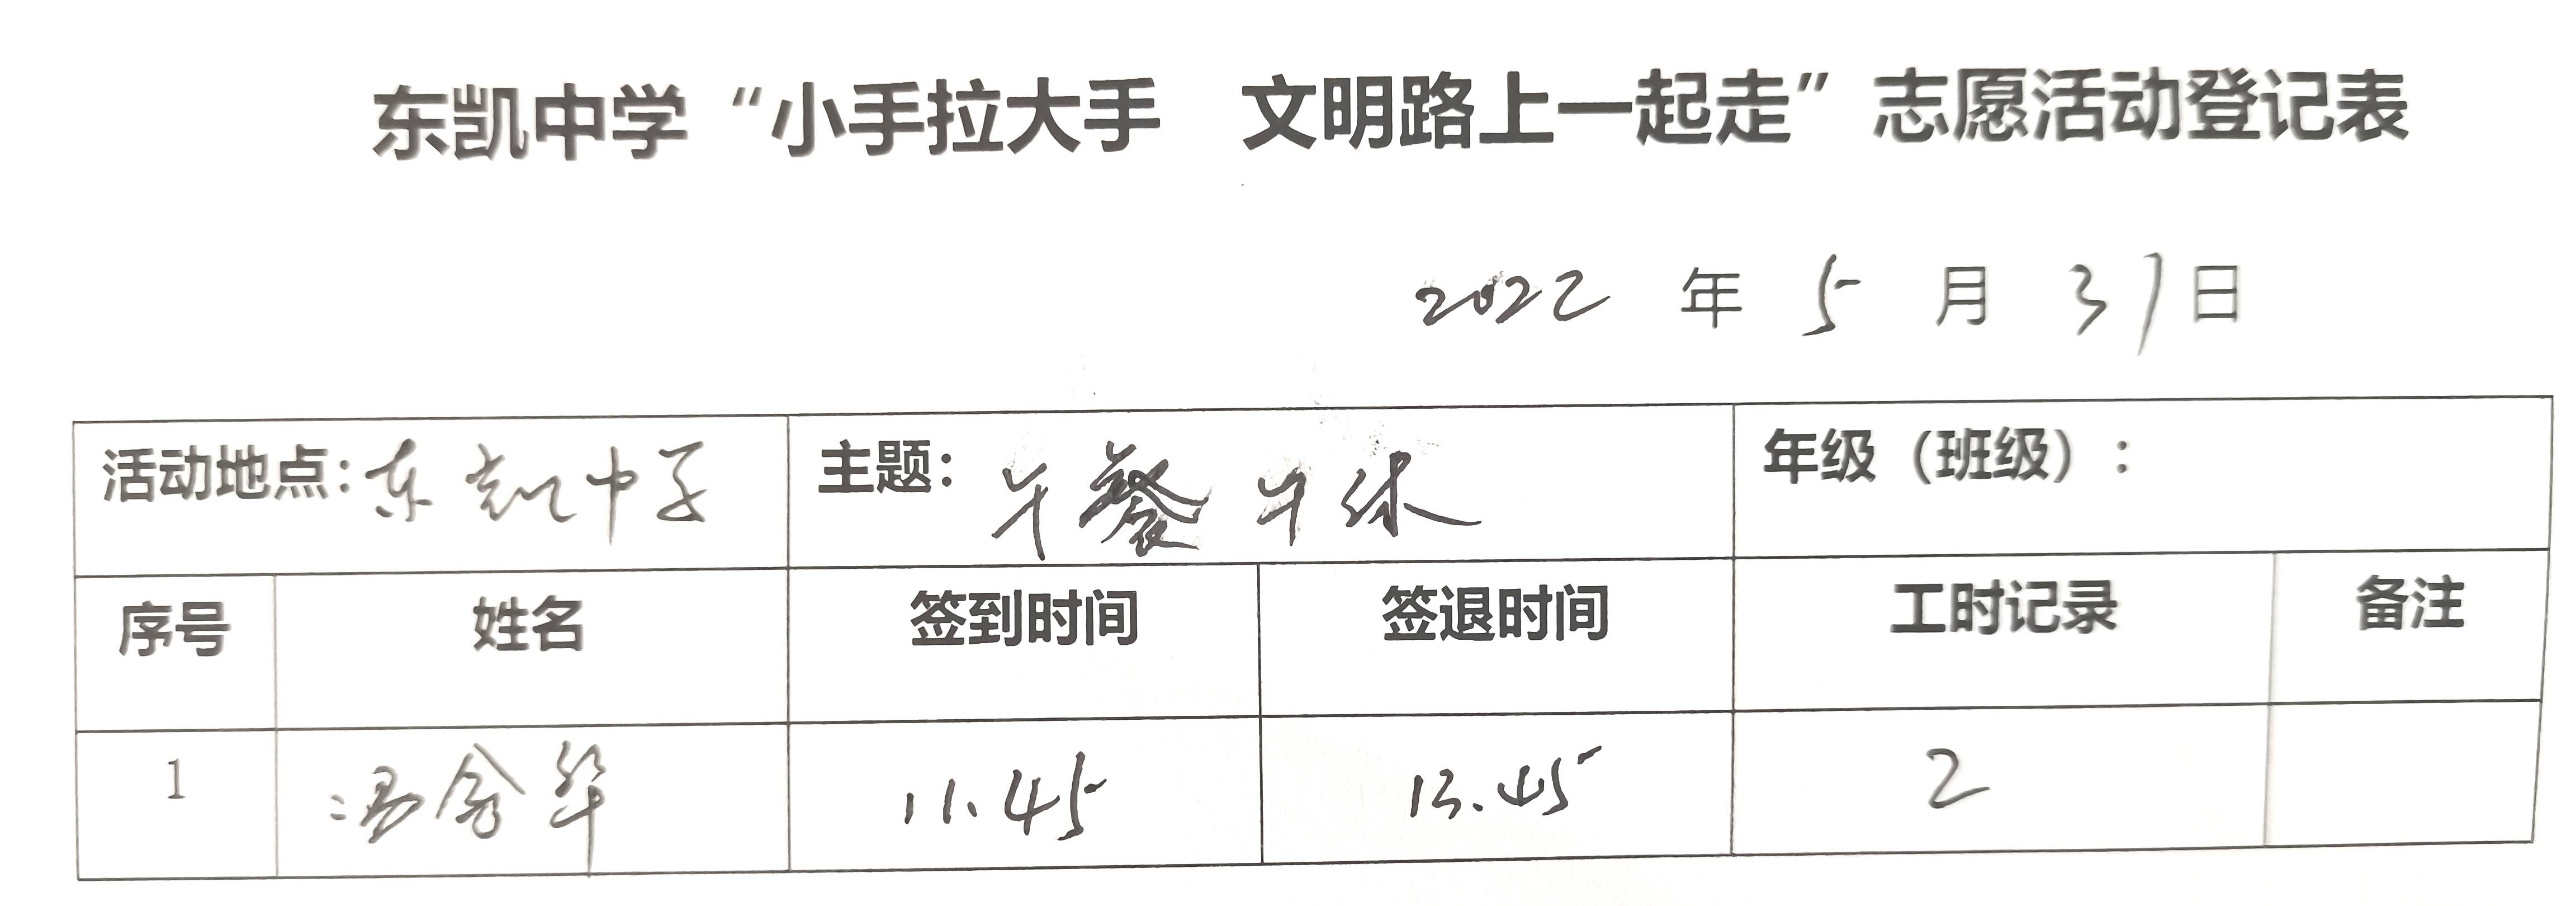 东凯中学“小手拉大手 文明路上一起走”志愿活动登记表
2022 年 5 月 31 日
活动地点：东凯中学 主题：午餐 午休 年级（班级）：
序号 姓名 签到时间 签退时间 工时记录 备注
1 华 11.45 13.45 2